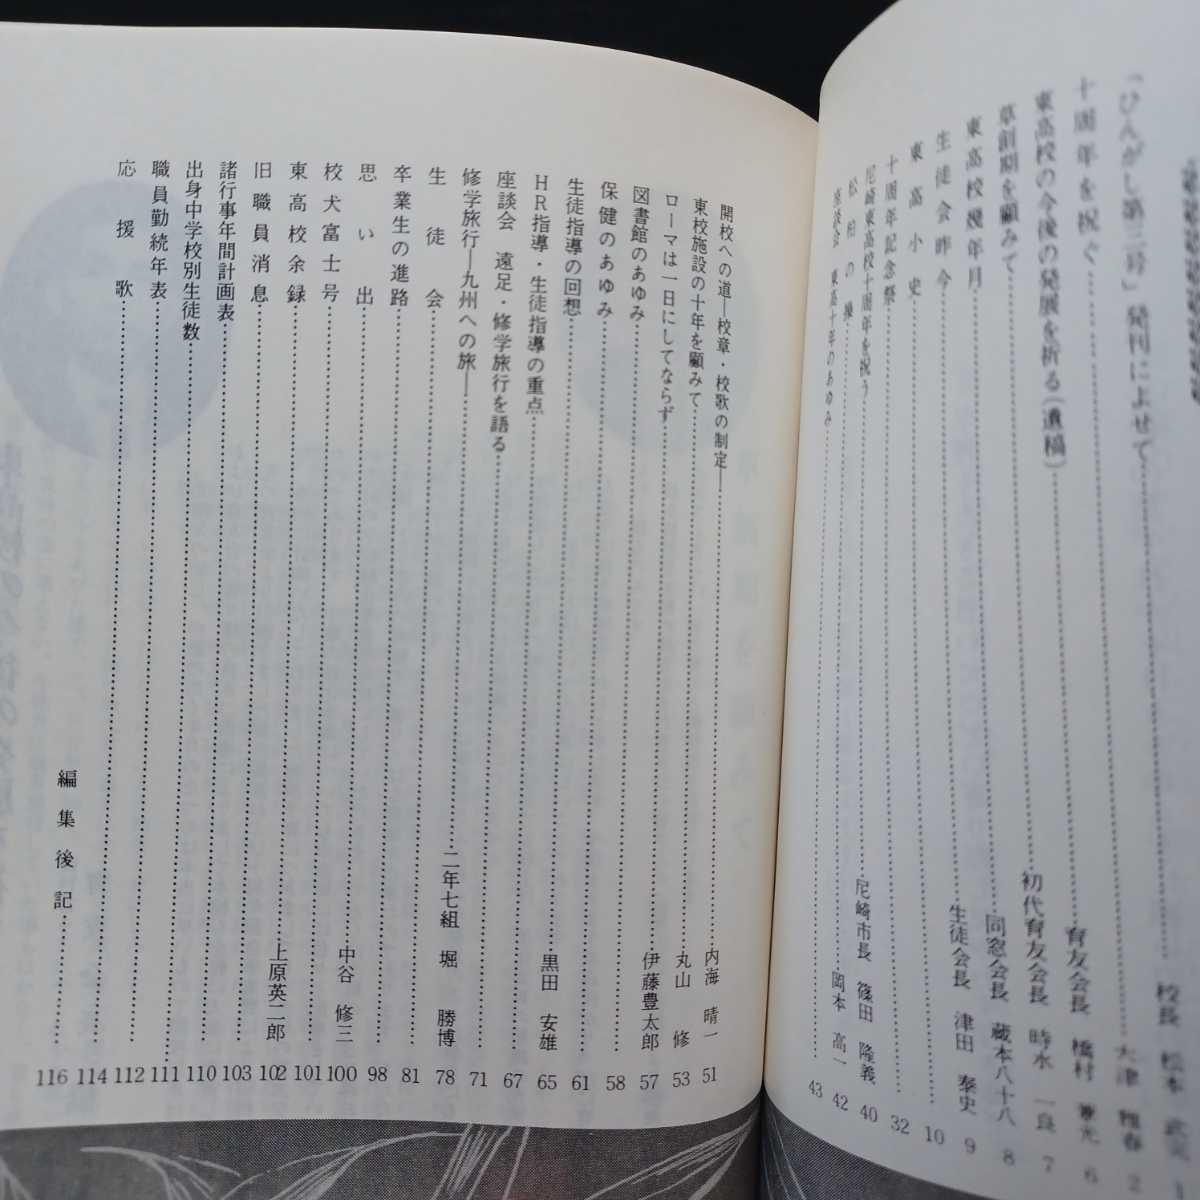 「ひんがし第三号」発刊によせて……校長 松本 1
十周年を祝ぐ……大津 雅春 2
東高校の今後の発展を祈る(遺稿)……育友会長 橋村 兼光 6
草創期を顧みて……初代育友会長 時永 一良 7
東高校幾年月……同窓会長 蔵本八十八 8
生徒会昨今……生徒会長 津田 泰史 9
東高小史……10
十周年記念祭……32
尼崎東高校十周年を祝う……尼崎市長 篠田 隆義 40
松柏の操……岡本 高一 42
座談会 東高十年のあゆみ……43
開校への道―校章・校歌の制定―……内海 晴一 51
東校施設の十年を顧みて……丸山 修 53
ローマは一日にしてならず……伊藤豊太郎 57
図書館のあゆみ……58
保健のあゆみ……61
生徒指導の回想……黒田 安雄 65
HR指導・生徒指導の重点……67
座談会 遠足・修学旅行を語る……71
修学旅行―九州への旅―……二年七組 堀 勝博 78
生徒会……81
卒業生の進路……98
思い出……中谷 修三 100
校犬富士号……101
東高校余録……上原英二郎 102
旧職員消息……103
諸行事年間計画表……110
出身中学校別生徒数……111
職員勤続年表……112
応援歌……114
編集後記……116